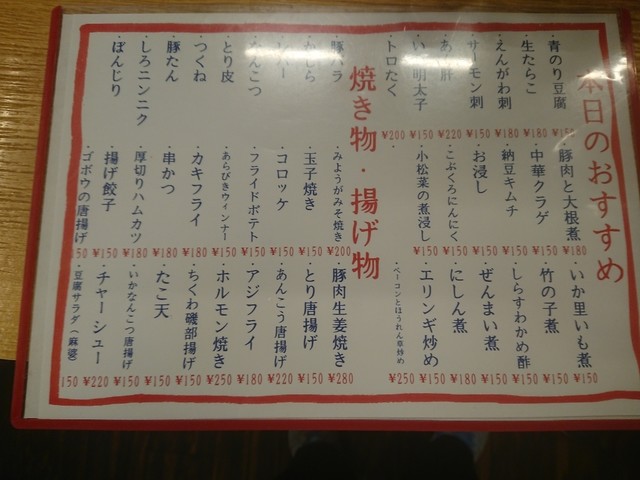 本日のおすすめ
青のり豆腐
生たらこ
えんがわ刺
サーモン刺
あん肝
いか明太子
トロたく
¥150
¥180
¥180
¥150
¥220
¥150
¥200
豚肉と大根煮
中華クラゲ
納豆キムチ
お浸し
こぶくろにんにく
小松菜の煮浸し
¥180
¥150
¥150
¥150
¥150
¥150
いか里いも煮
竹の子煮
しらすわかめ酢
ぜんまい煮
にしん煮
エリンギ炒め
ベーコンとほうれん草炒め
¥150
¥150
¥150
¥150
¥180
¥150
¥250
焼き物・揚げ物
豚バラ
かしら
レバー
なんこつ
とり皮
つくね
豚たん
しろニンニク
ぼんじり
みょうがみそ焼き
玉子焼き
コロッケ
フライドポテト
あらびきウィンナー
カキフライ
串かつ
厚切りハムカツ
揚げ餃子
ゴボウの唐揚げ
¥200
¥150
¥150
¥150
¥150
¥180
¥180
¥180
¥150
150
豚肉生姜焼き
とり唐揚げ
あんこう唐揚げ
アジフライ
ホルモン焼き
ちくわ磯部揚げ
たこ天
いかなんこつ唐揚げ
チャーシュー
豆腐サラダ(麻婆)
¥280
¥150
¥220
¥180
¥250
¥150
¥150
¥150
¥220
150